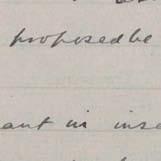 proposed be
ant in inse